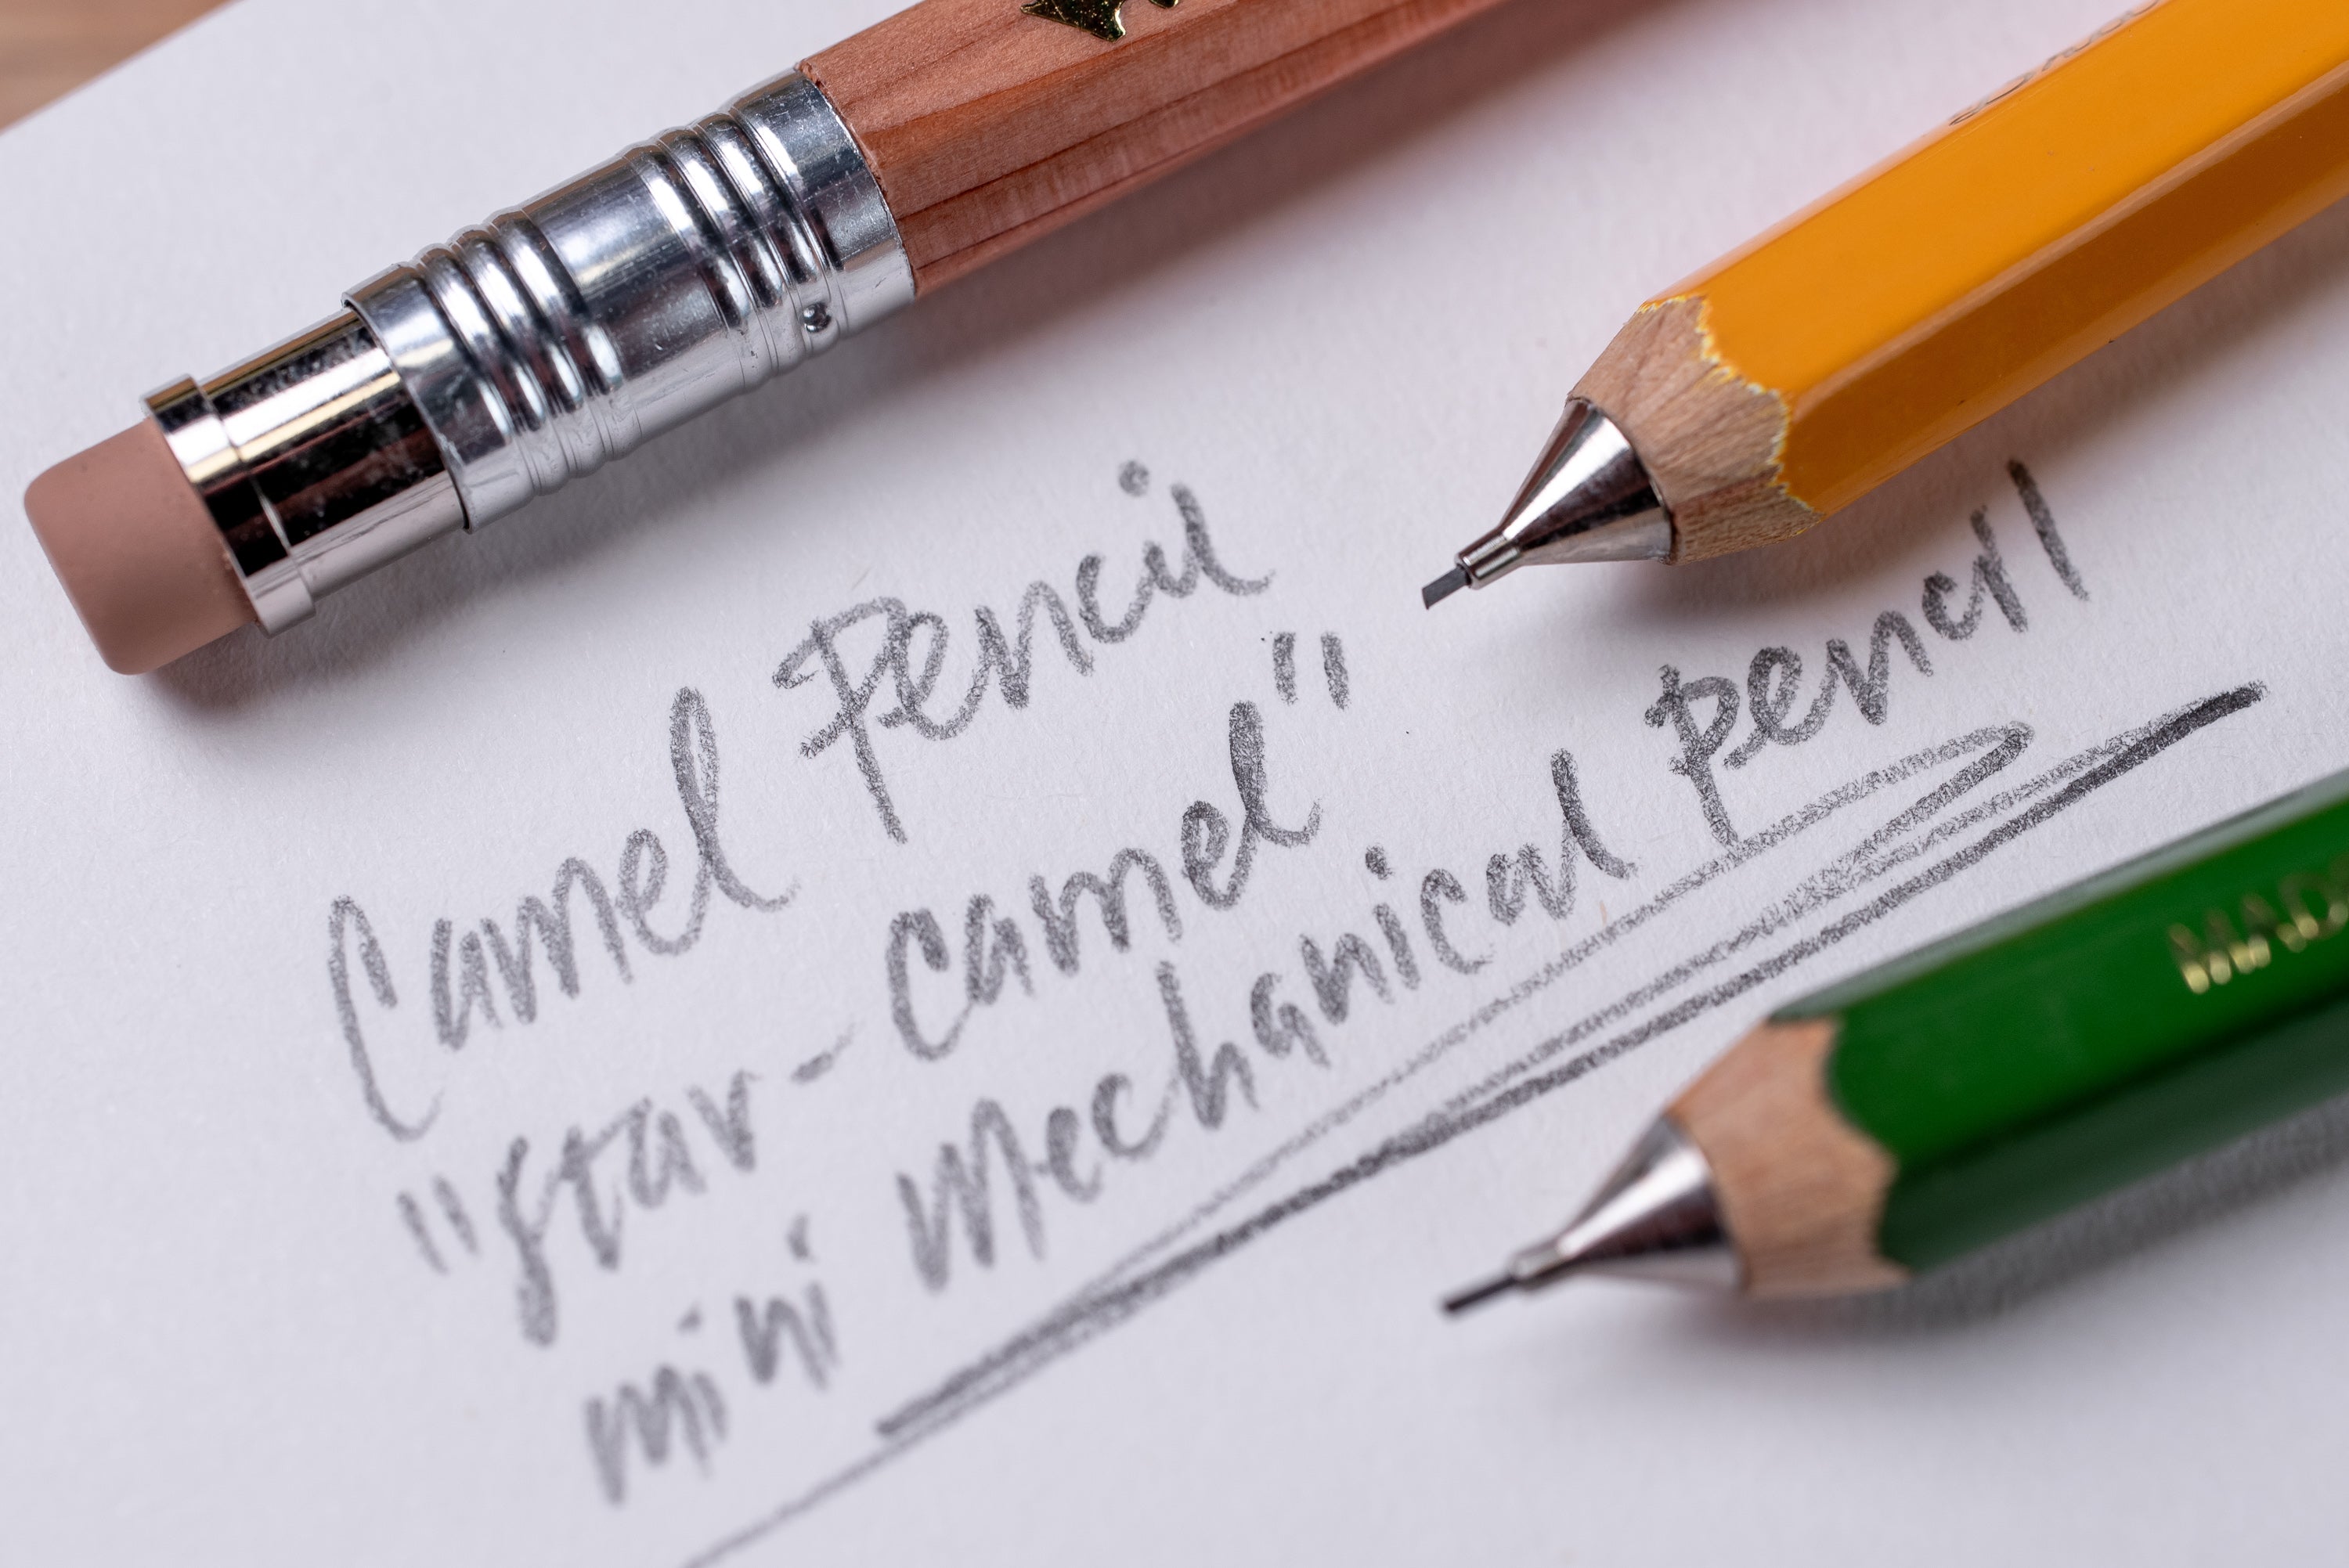 Camel Pencil
"star-camel"
mini Mechanical Pencil
MADE